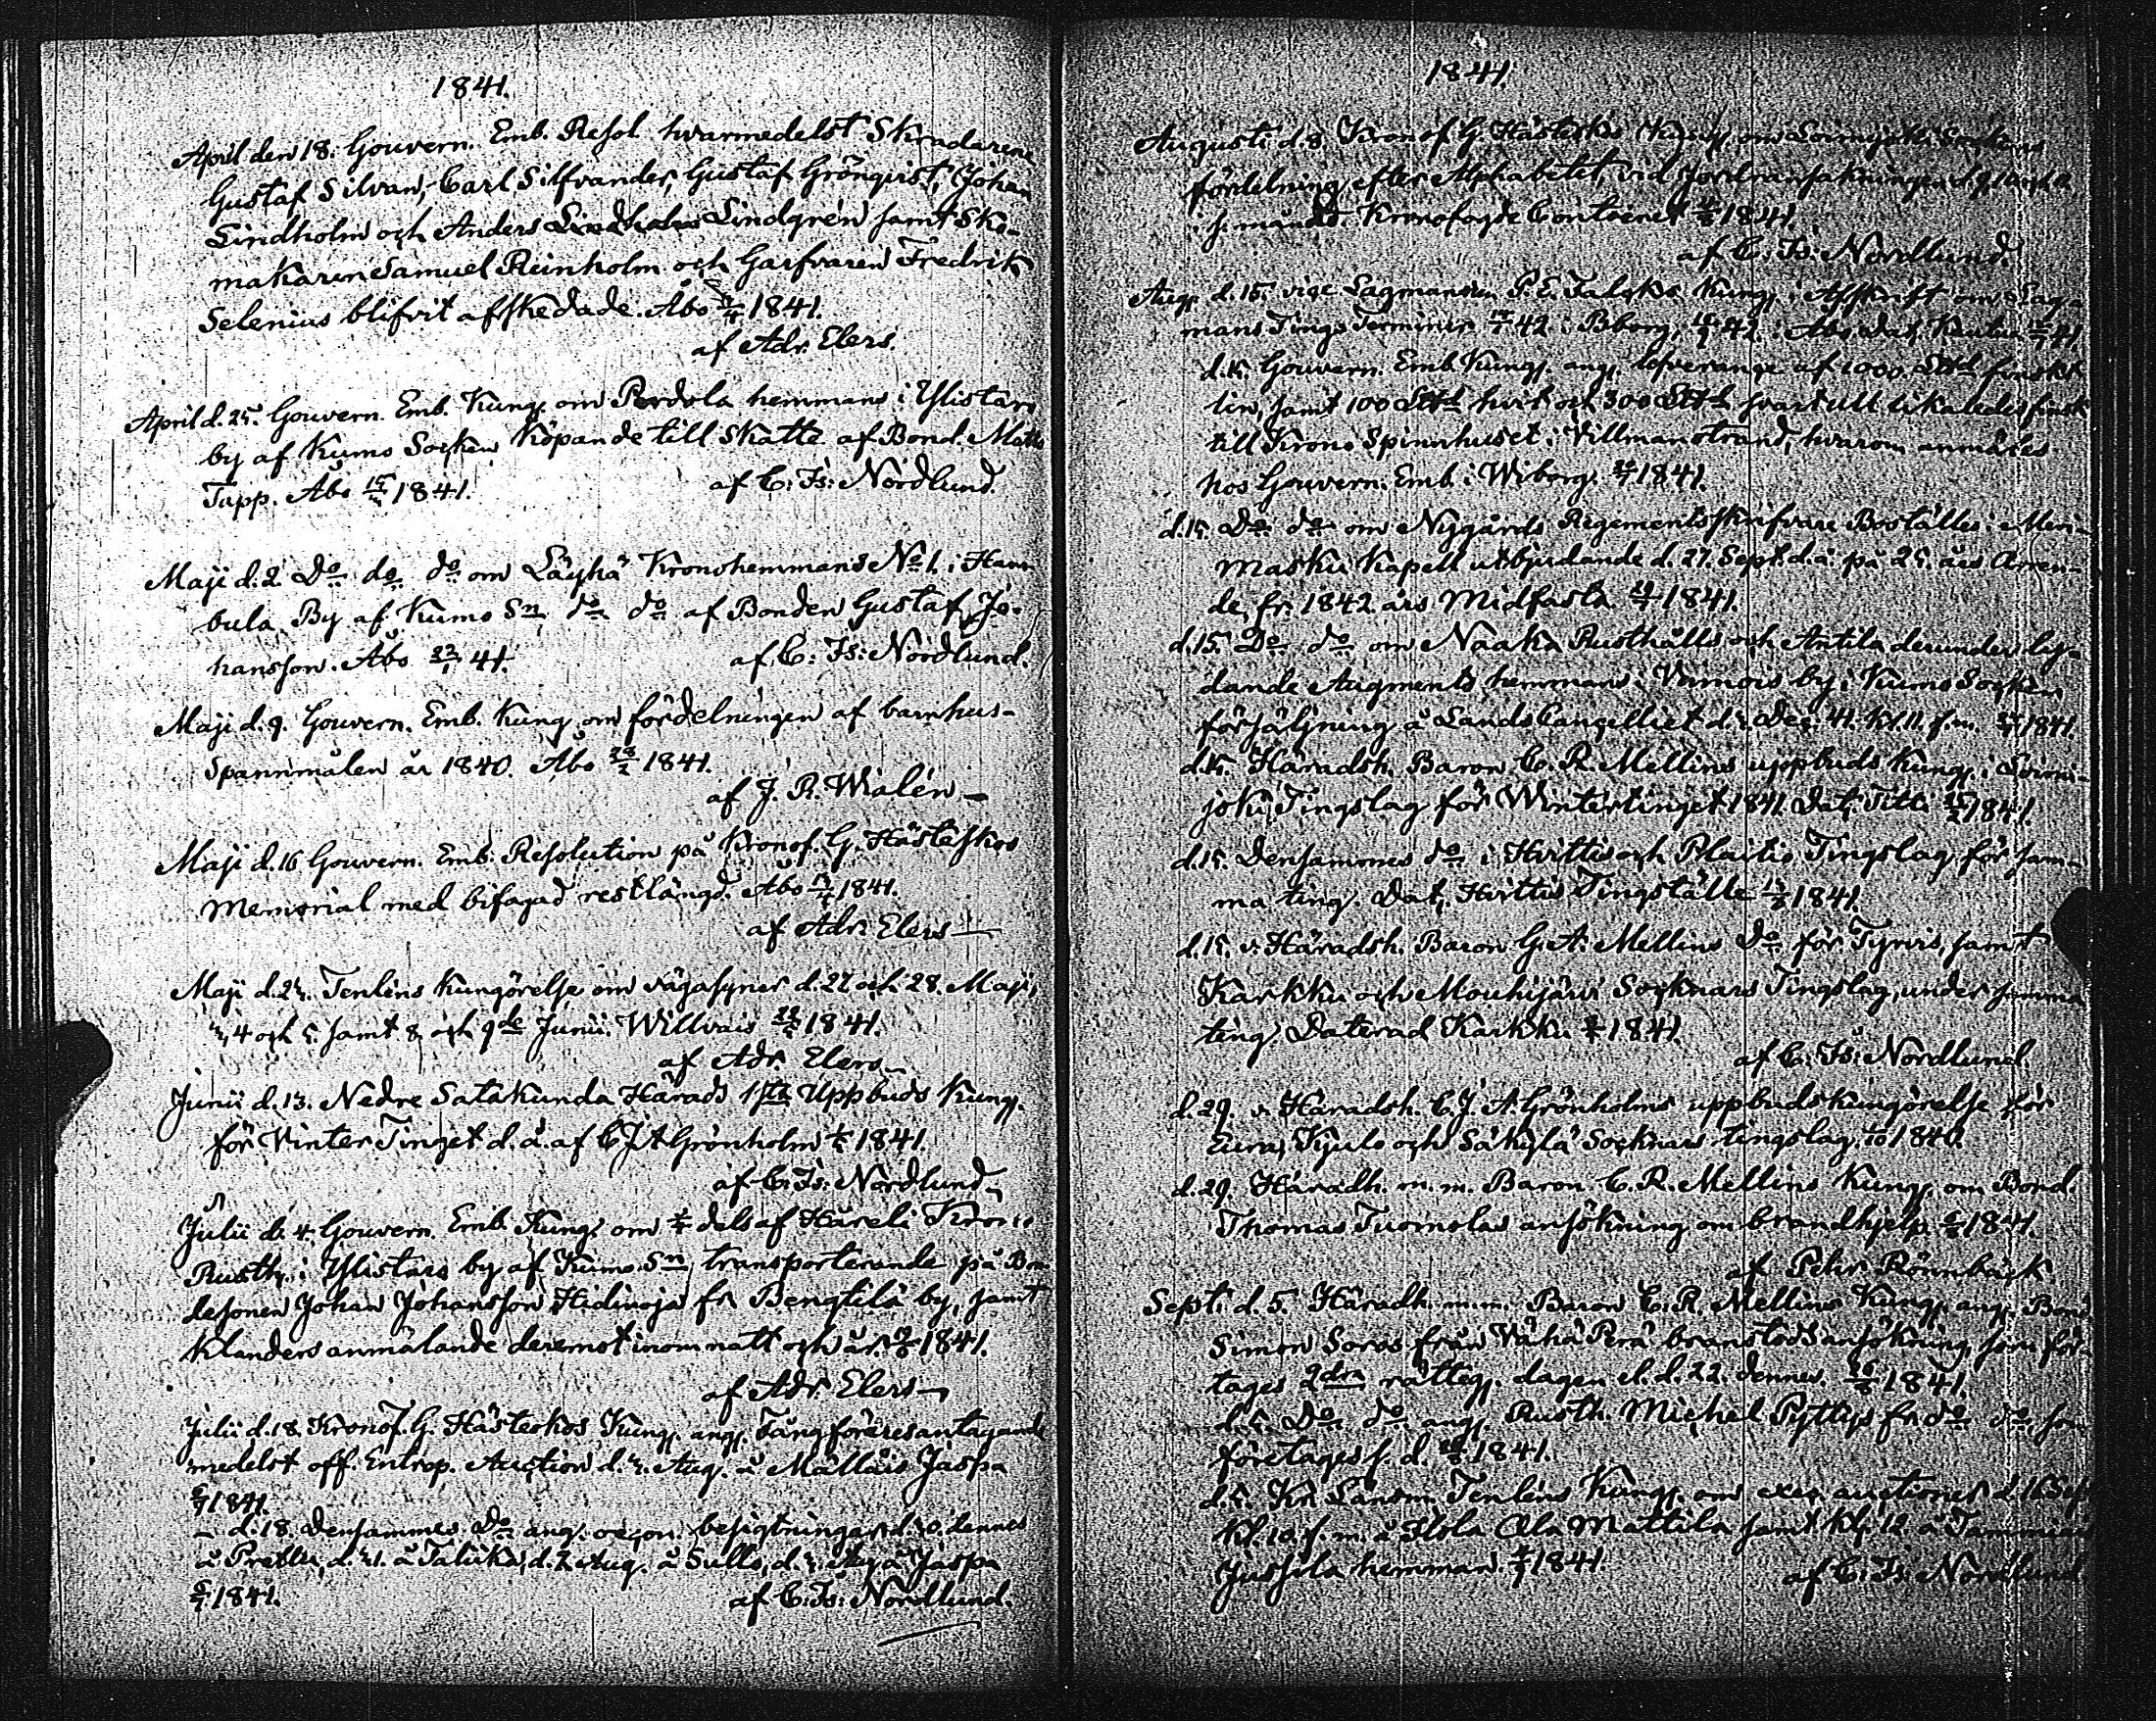 1841.
April den 18. Gouvern. Emb. Resol. hvarmedelst Skradarene
Gustaf Silvan, Carl Silfvander, Gustaf Grönqvist, Johan
Lindholm och Anders Lindholm Lindgrén samt Sko-
makaren Samuel Reinholm och Garfvaren Fredrik
Selenius blifvit afskedade. Åbo 1841.
af Adr. Elers.
April d. 25. Gouvern. Emb. Kung. om Perdola hemmans i Ylistaro
by af Kumo Socken Köpande till Skatte af Bond. Matts
Tapp. Åbo 15/4 1841.
af C: Fs: Nordlund.
Maji d. 2. Do do do om Läyhä Kronohemmans No 1. i Ham-
bula By af Kumo Sn do do af Bonden Gustaf Jo-
hansson. Åbo 41.
af C: Fs: Nordlund.
Maji d. 9. Gouvern. Emb. Kung. om fördelningen af barnhus-
Spannmålen år 1840. Åbo 1841.
af J. R. Wialén
Maji d. 16 Gouvern. Emb. Resolution på Kronof. G. Hästeskos
Memorial med bifogad restlängd. Åbo 1841.
af Adr. Elers
Maji d. 23. Tenléns kungörelse om vägasyner d. 27 och 28. Maji,
3, 4 och 5. samt 8 och 9de Junii. Willvais 1841.
af Adr. Elers
Junii d. 13. Nedre Satakunda Härads 1sta Uppbuds Kung.
för Vinter Tinget d. å. af C J A Grönholm 1841.
af C: Fs: Nordlund
Julii d. 4. Gouvern. Emb. Kung. om dels af Häreli Krono
Rusth. i Ylistaro by af Kumo Sn transporterande på Bon-
desonen Johan Johansson Hidinoja fr. Bengtilä by, samt
klanders anmälande deremot inom natt och år. 1841.
af Adr. Elers
Julii d. 18. Kronof. G. Hästeskos Kung. ang. Fångföraresantagande
medelst off. Entrep. Auction d. 3. Aug. å Mällais Jaspa
6/7 1841.
d. 18 Densammes Do ang. besigtningar d. 30. dennes
å d. 31. å d. 2 Aug. å Sullo, d. 3. Aug. å Jaspa
6/7 1841.
af C: Fs: Nordlund.
1841.
Augusti d. 8. Kronof. G. Hästeskos Kung. om Loimijoki Socknens
fördelning efter Alphabetet vid Jordransakningen d. 9, 10 och 11
i s. månad. Kronofogde Contoiret 1841.
af C: Fs: Nordlund.
Aug. d. 15. vice Lagmannen P. E. Talcks Kung. i Afskrift om Lag-
mans Tings Terminer 42 i Bborg, 42 i Åbo. Dat. 41
d. 15. Gouvern. Emb. Kung. ang. lefverange af 1000 finskt
lin, samt 100 hvit och 300 svart ull likaledes finsk
till Krono Spinnhuset i Villmanstrand, hvarom anmäles
hos Gouvern. Emb. i Wiborg. 1841.
d. 15. Do do om Nygårds Regementsskrifvare Boställes i Meri-
masku Kapell utbjudande d. 27. Sept. d. å. på 25. års Arren-
de fr. 1842 års Midfasta. 1841.
d. 15. Do do om Naaka Rusthålls och Antila derunder ly-
dande Augments hemmans i Vemois by i Kumo Socken
försäljning å Lands Cancelliet d. 3. Dec. 41. Kl. 11. f.m. 1841.
d. 15. Häradsh. Baron C. R. Mellins uppbuds kung. i Loimi-
joki Tingslag för Wintertinget 1841. Dat. Titti 1841.
d. 15. Densammes do i Hvittis och Tingslag för sam-
ma ting. Dat. Hvittis Tingställe 1841.
d. 15. v. Häradsh. Baron G. A. Mellins Do för Tyrvis, samt
Karkku och Mouhijärvi Socknars Tingslag, under samma
ting. Daterad Karkku 1841.
af C: Fs: Nordlund.
d. 29. v. Häradsh. C. J. A. Grönholms uppbuds kungörelse för
Eura, Kjulo och Säkylä Socknars tingslag. 1840.
d. 29. Häradh. m. m. Baron C. R. Mellins Kung. om Bond.
Thomas Tuomolas ansökning om brandhjelp. 1841.
af Pehr Rönnbäck
Sept. d. 5. Häradh. m. m. Baron C. R. Mellins Kung. ang. Bond.
Simon Soros från Vähä Perä brandstods ansökning, som före-
tages 2dra rätteg. dagen el. d. 22. dennes. 1841.
d. 5. Do do ang. Rusth. Michel Pyttys fr. do do, som
företages s. d. 1841.
d. 5. Kr. Länsm. Tenléns Kung. om exec. auctioner d. 16 Sep.
Kl. 10. f. m. å Flola Ala Mattila samt Kl. 12 å
Jussila hemman. 1841.
af C: Fs: Nordlund